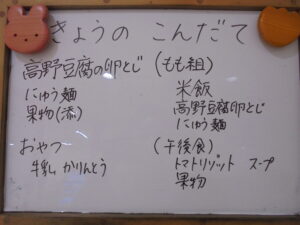 きょうの こんだて
高野豆腐の卵とじ
にゅう麺
果物(添)
おやつ
牛乳 かりんとう
(もも組)
米飯
高野豆腐卵とじ
にゅう麺
(午後食)
トマトリゾット スープ
果物